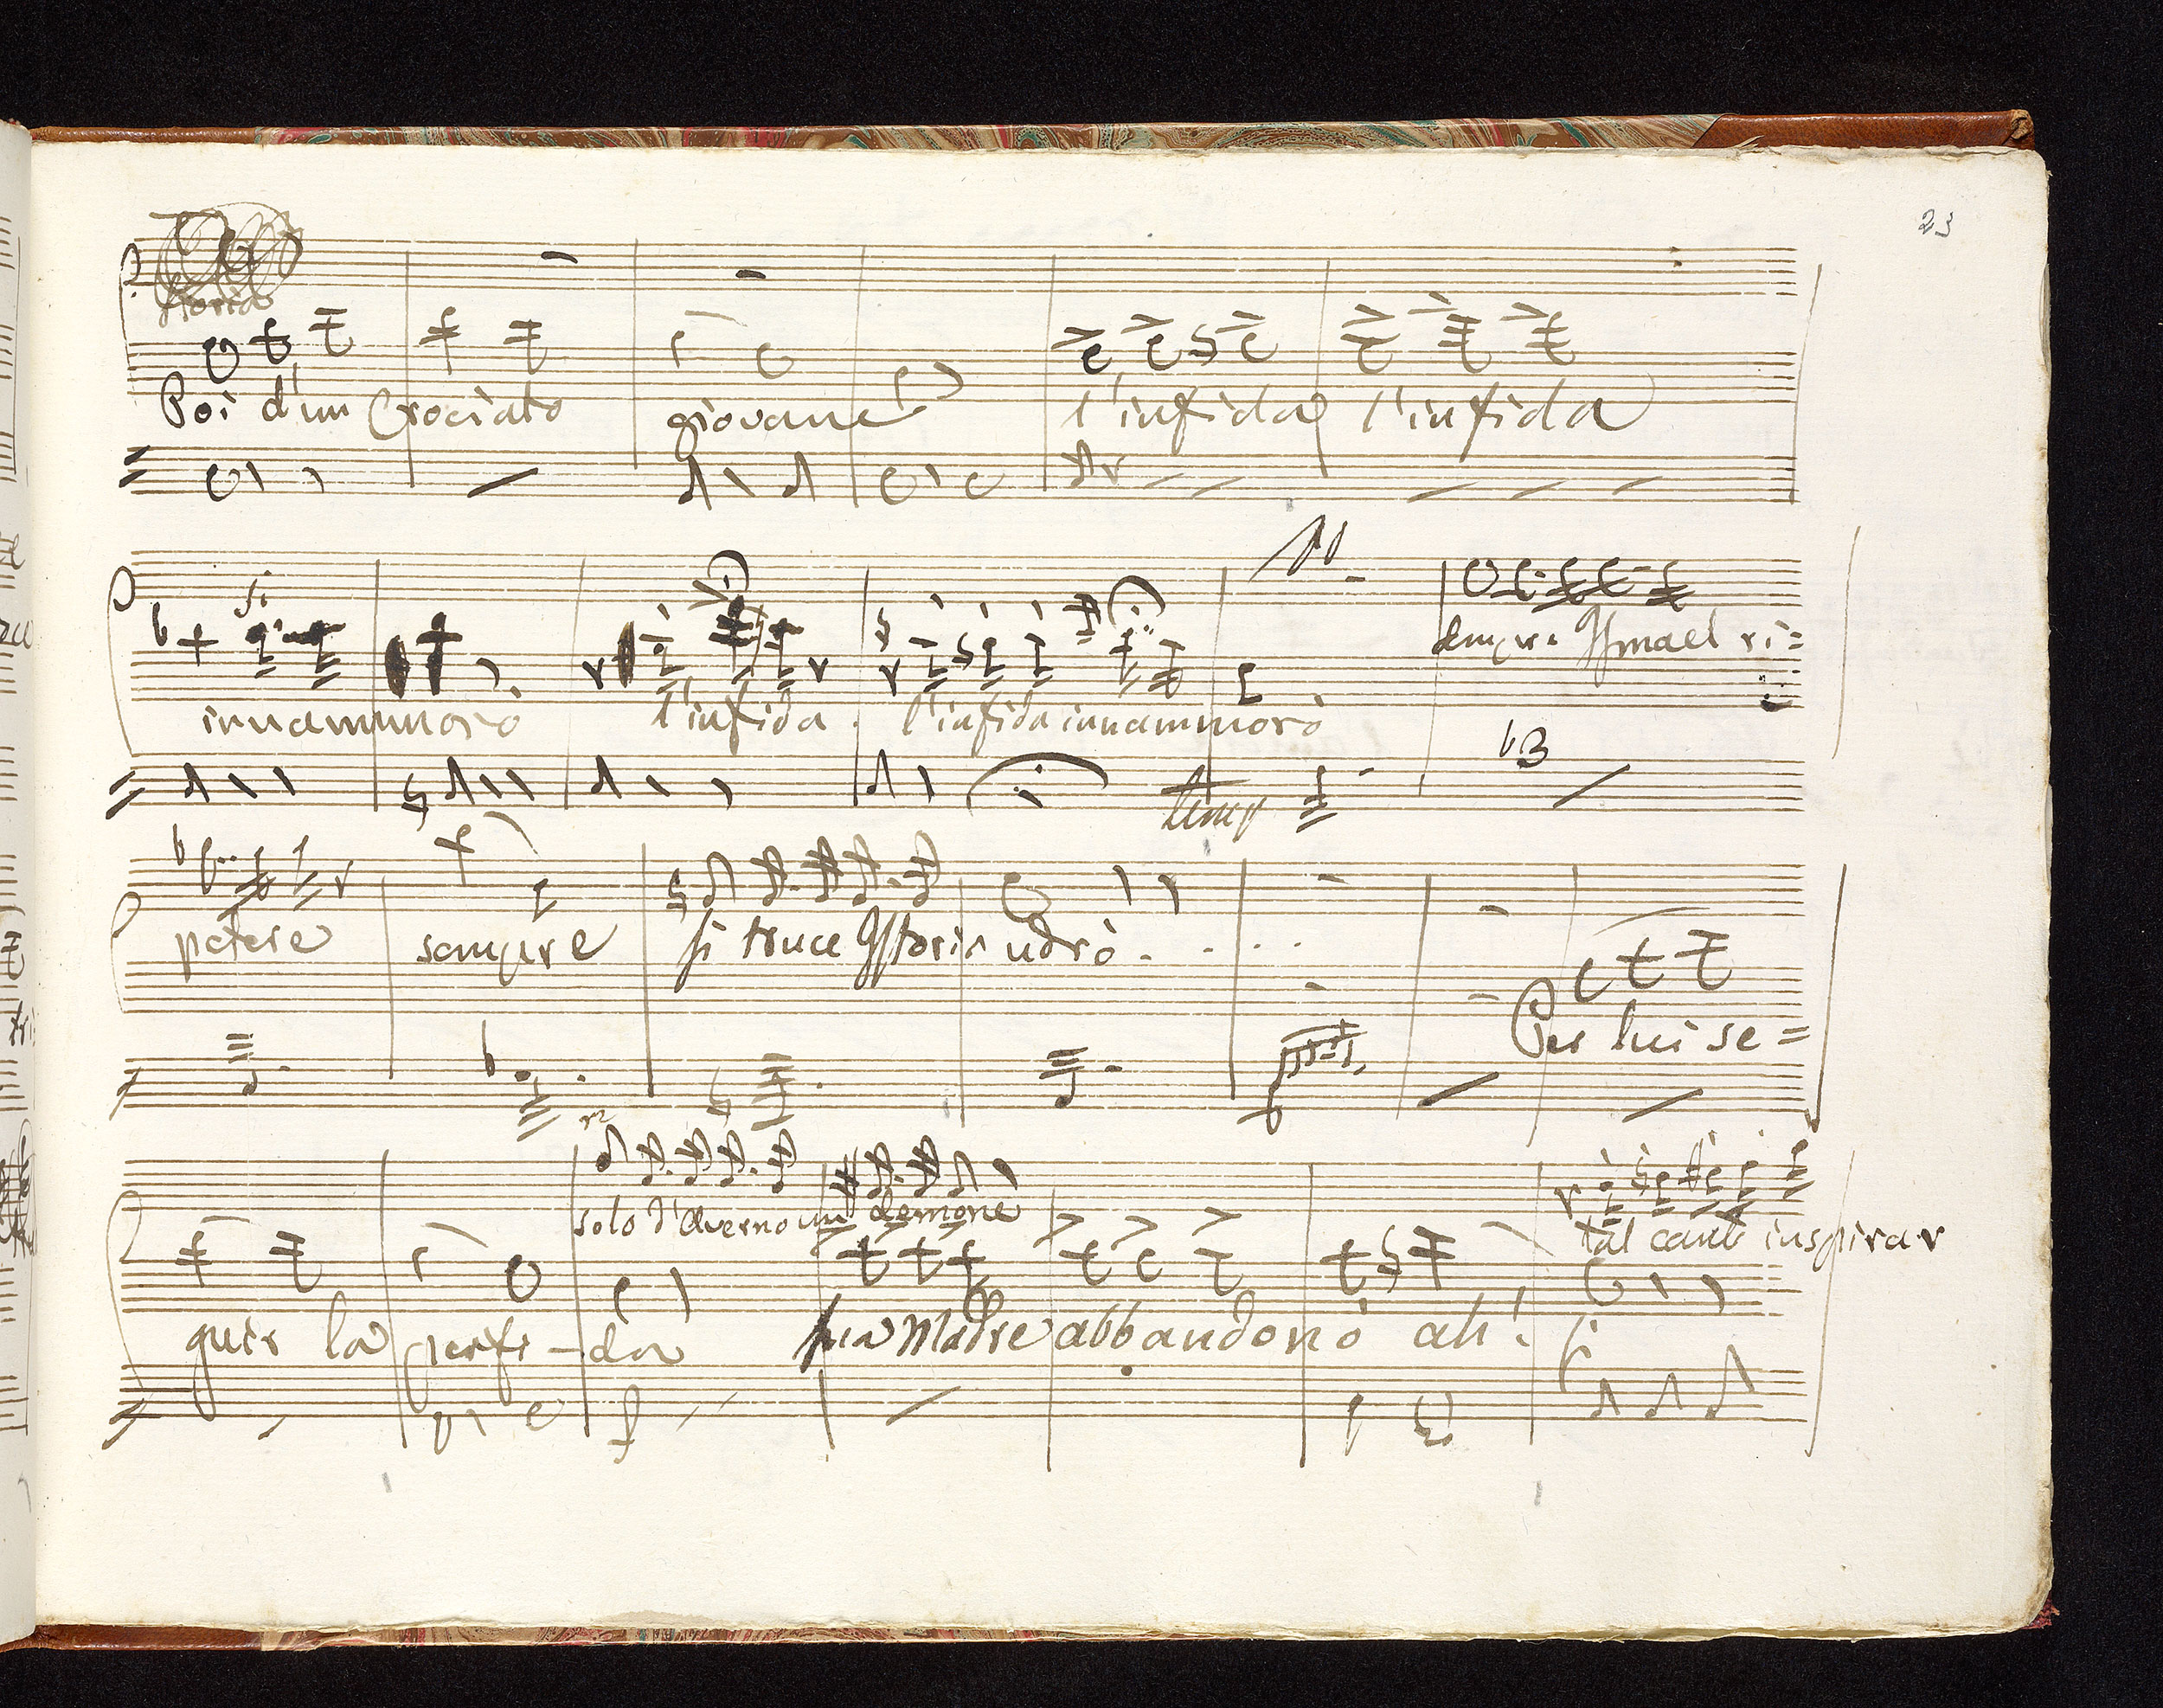 23
storia
Poi d'un Crociato giovane l'infida l'infida
si
Ismael ri=
innammorò l'infida. l'infida innammorò
b3
temp
petere sempre si truce Istoria udrò - . . .
Per lui se=
solo d'averno un demone
tal canto inspirar
guir la perfi-da sua Madre abbandonò ah!